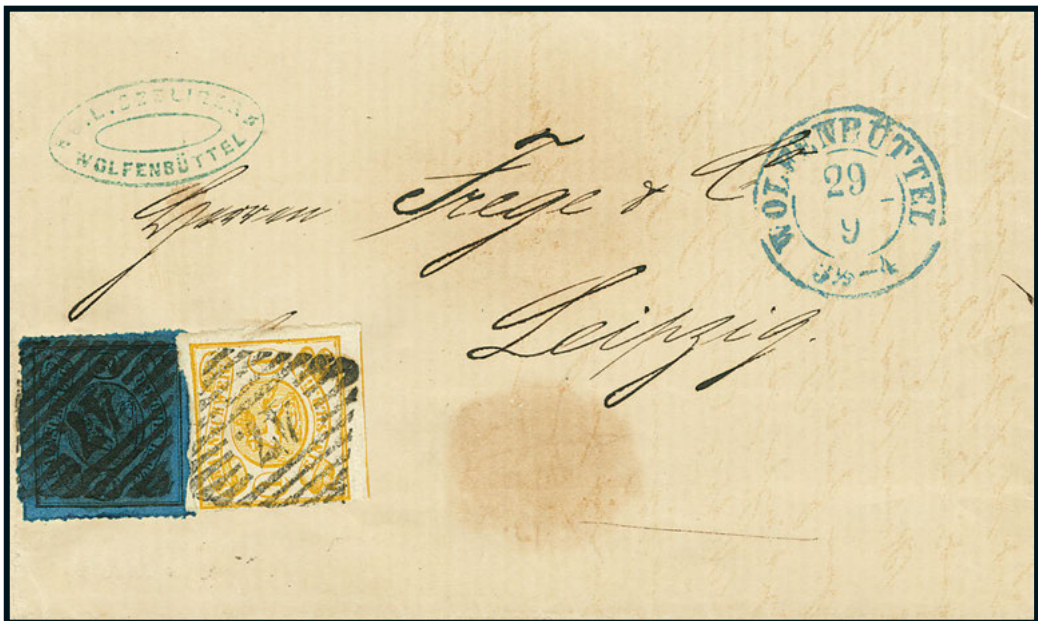 C.L. SEELIGER
WOLFENBÜTTEL
WOLFENBÜTTEL
29
9
3½-4
Herren Frege & C
Leipzig.